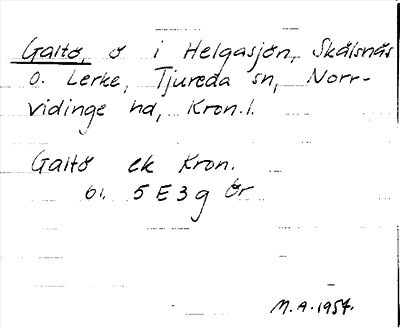 Galtö, ö i Helgasjön, Skälsnäs
o. Lerke, Tjureda sn, Norr-
vidinge hd, Kron.l.
Galtö ek Kron.
bl. 5 E 3 g Ör
M.A. 1954.